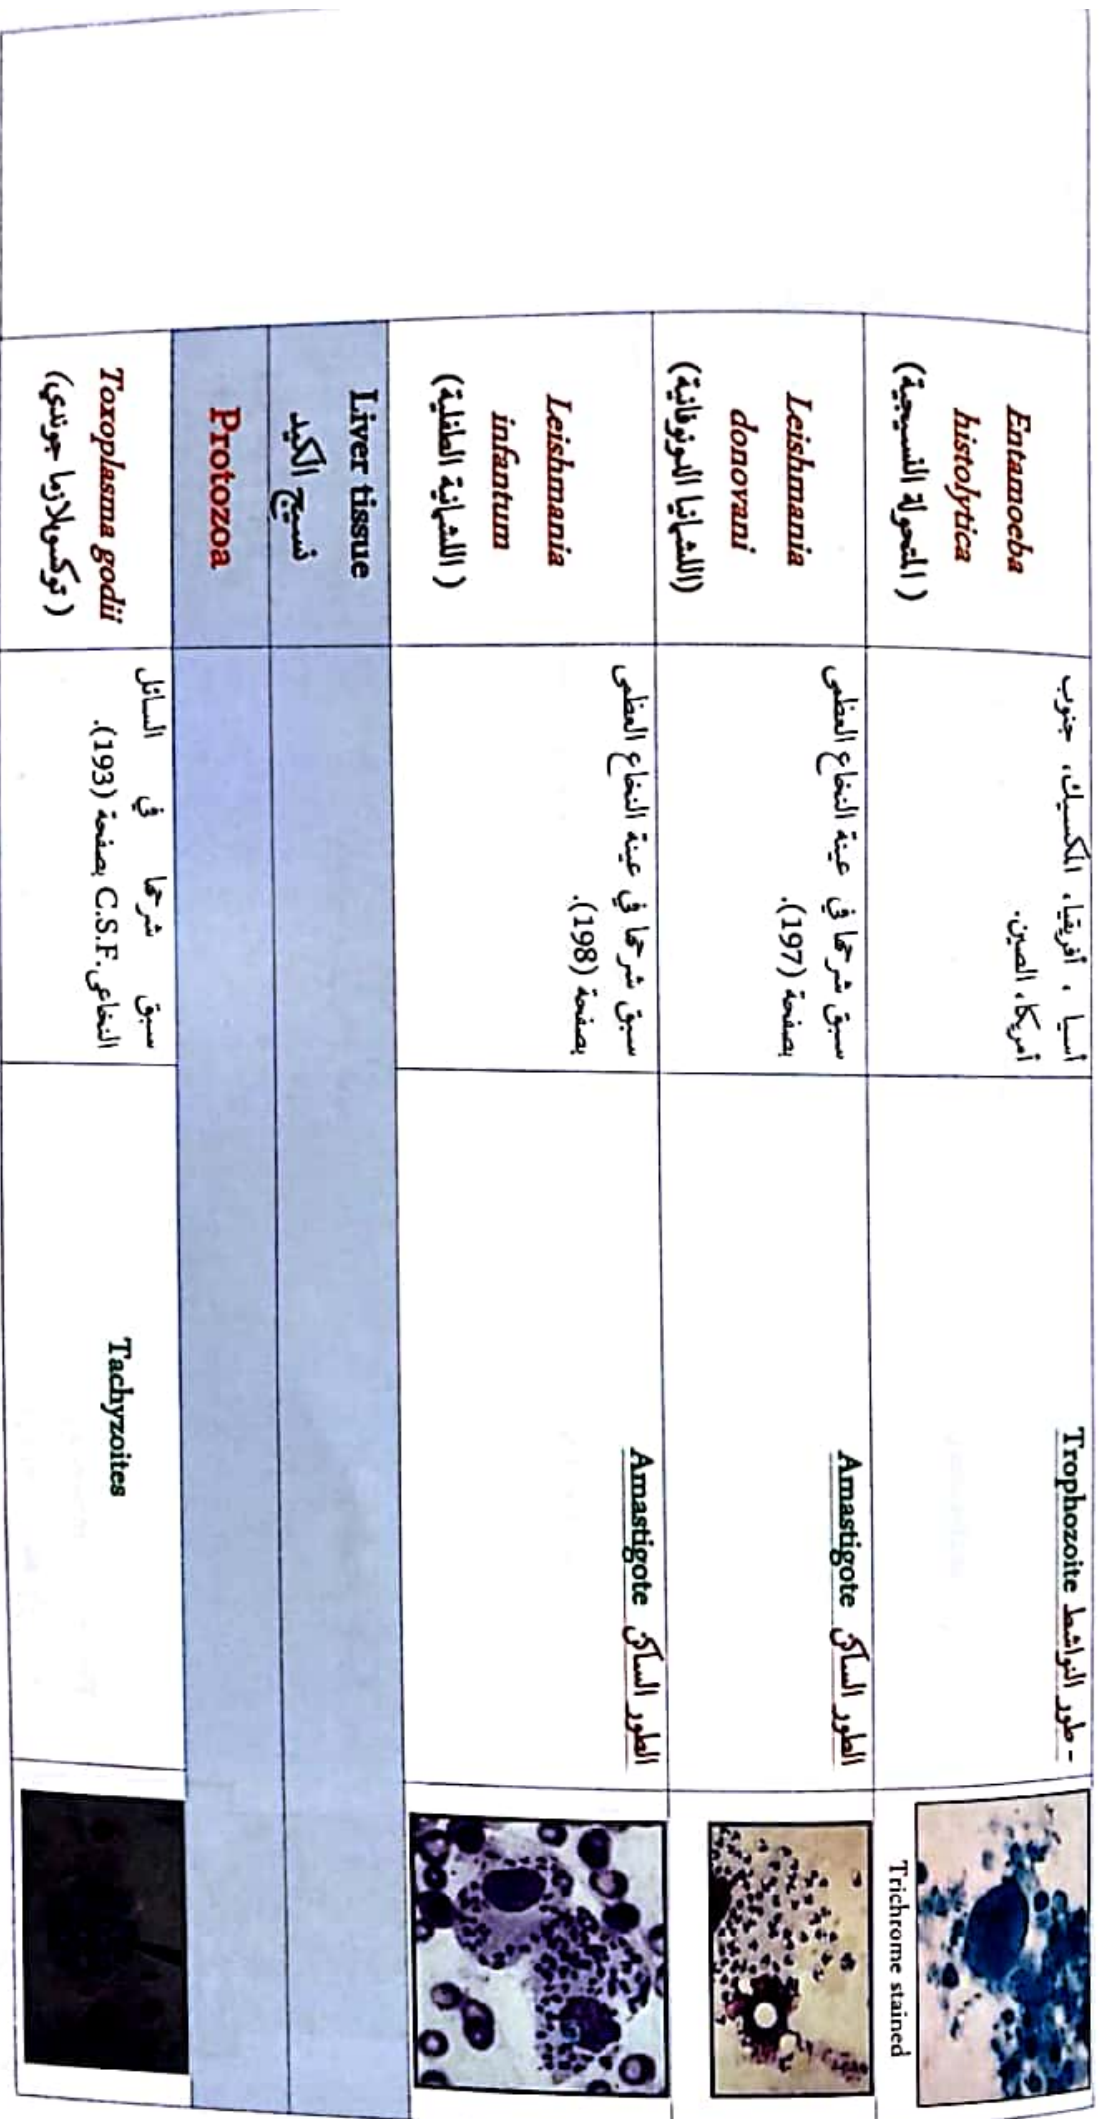 Entamoeba
histolytica
(المتحولة النسيجية)
أسيا ، أفريقيا، المكسيك، جنوب
أمريكا، الصين.
- طور النواشط Trophozoite
Trichrome stained
Leishmania
donovani
(اللشمانيا الدونوفانية)
سبق شرحها في عينة النخاع العظمى
بصفحة (197).
الطور الساكن Amastigote
Leishmania
infantum
(اللشمانية الطفلية)
سبق شرحها في عينة النخاع العظمى
بصفحة (198).
الطور الساكن Amastigote
Liver tissue
نسيج الكبد
Protozoa
Toxoplasma godii
(توكسوبلازما جوندي)
سبق شرحها في السائل
النخاعى .C.S.F بصفحة (193).
Tachyzoites